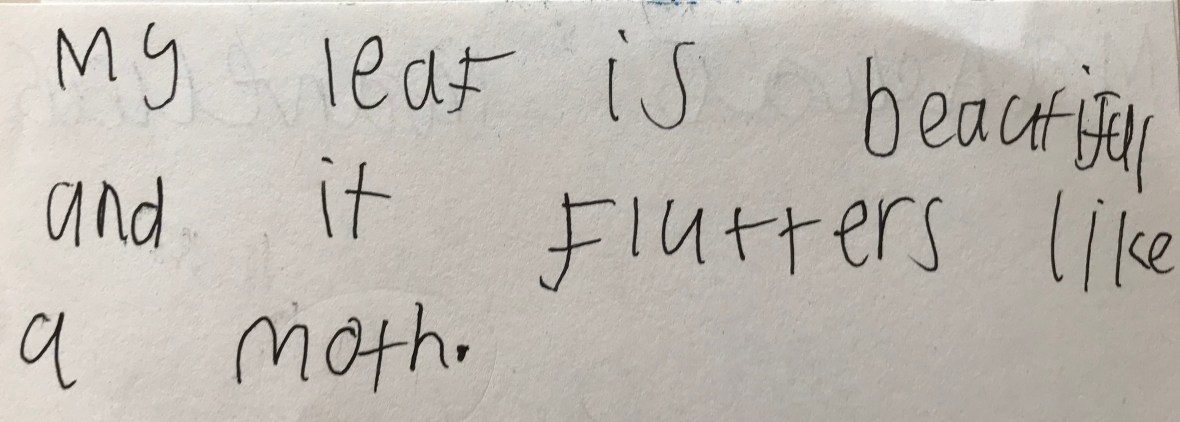 My leaf is beautiful
and it flutters like
a moth.